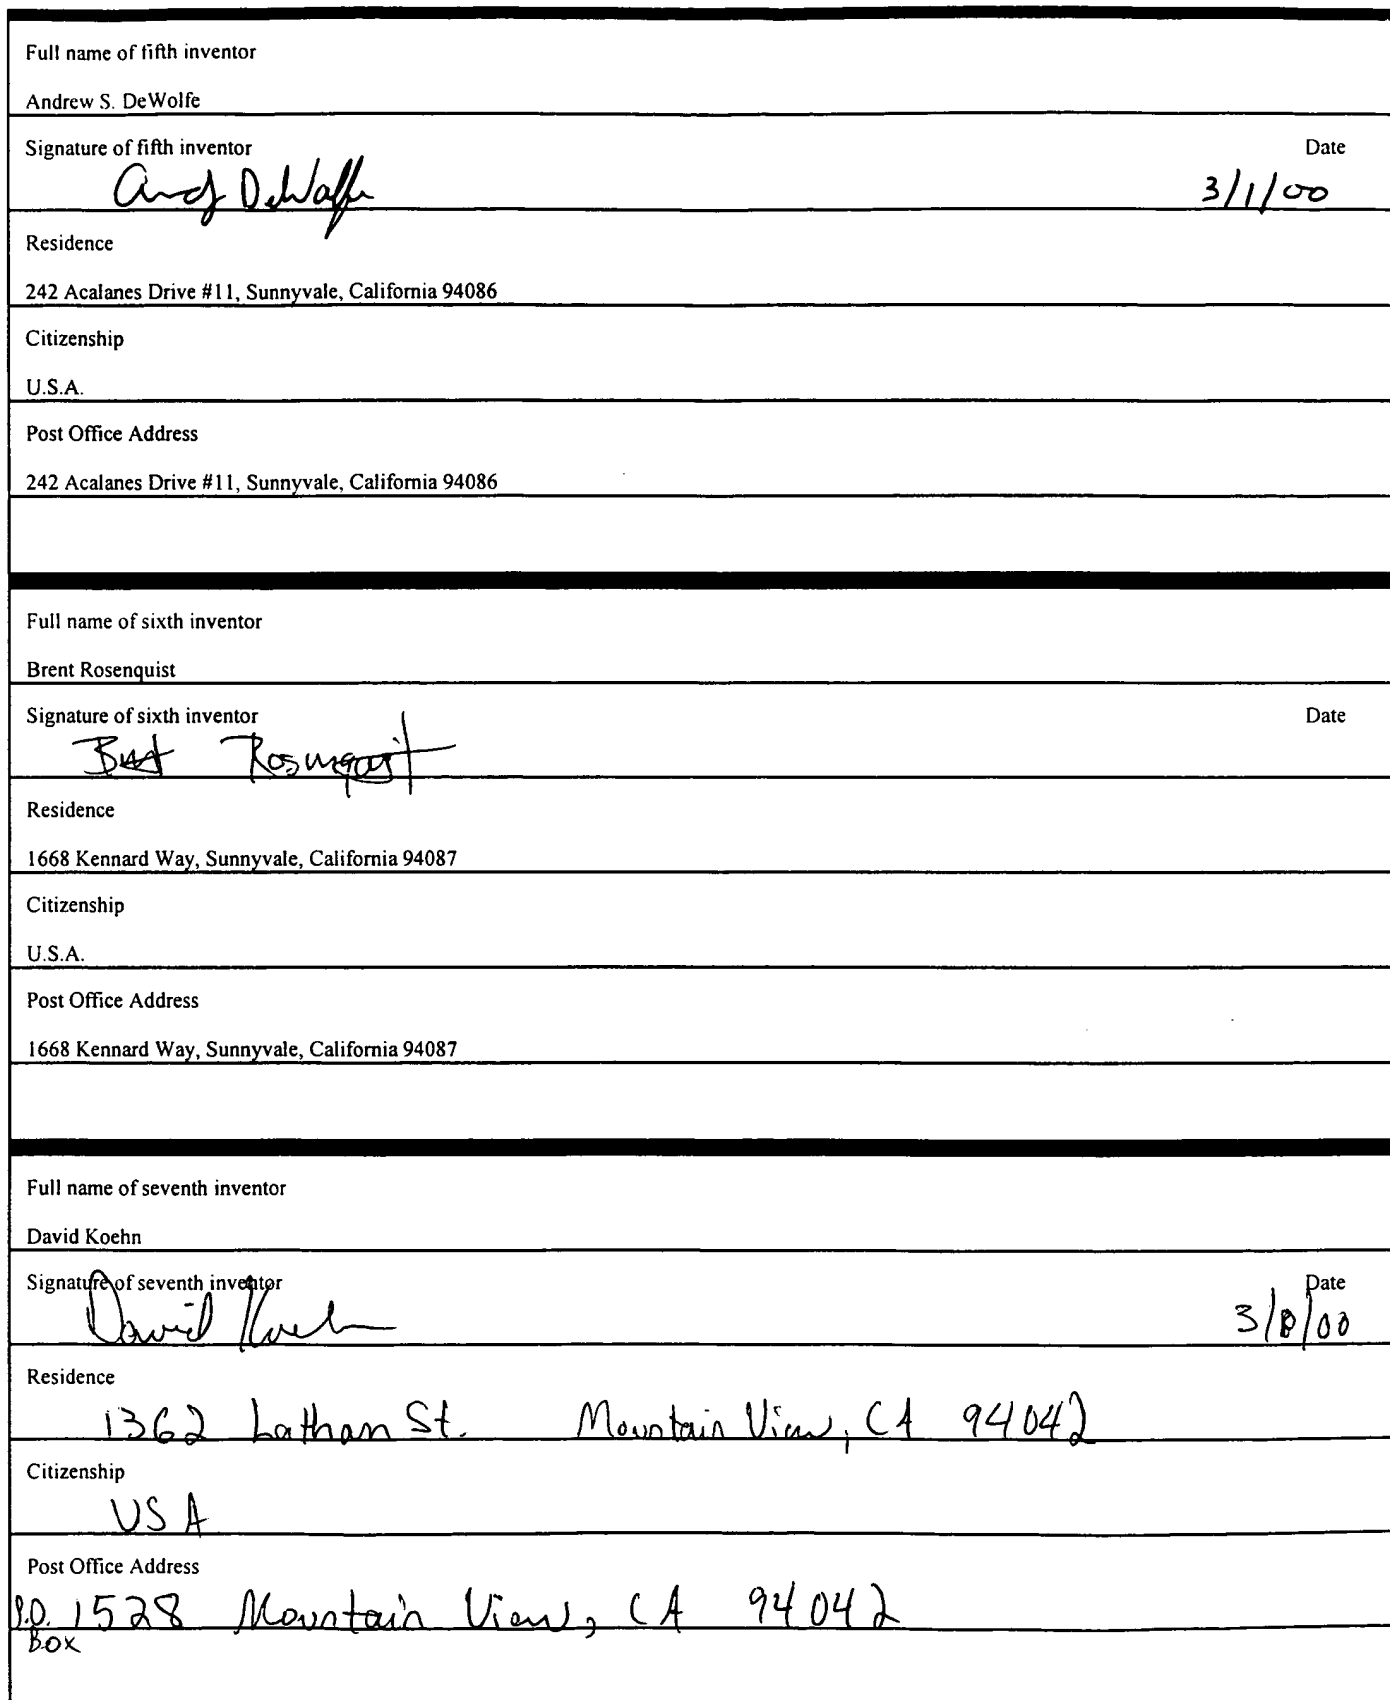 Full name of fifth inventor
Andrew S. DeWolfe
Signature of fifth inventor Date
Andy DeWolfe 3/1/00
Residence
242 Acalanes Drive #11, Sunnyvale, California 94086
Citizenship
U.S.A.
Post Office Address
242 Acalanes Drive #11, Sunnyvale, California 94086
Full name of sixth inventor
Brent Rosenquist
Signature of sixth inventor Date
Brent Rosenquist
Residence
1668 Kennard Way, Sunnyvale, California 94087
Citizenship
U.S.A.
Post Office Address
1668 Kennard Way, Sunnyvale, California 94087
Full name of seventh inventor
David Koehn
Signature of seventh inventor Date
David Koehn 3/8/00
Residence
1362 Latham St. Mountain View, CA 94042
Citizenship
USA
Post Office Address
P.O. 1528 Mountain View, CA 94042
Box